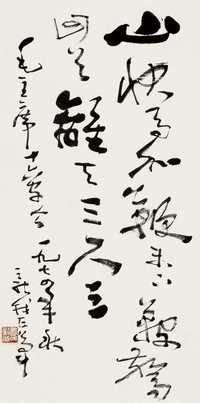 山快馬加鞭未下鞍驚
回首離天三尺三
毛主席十六字令 一九七四年秋